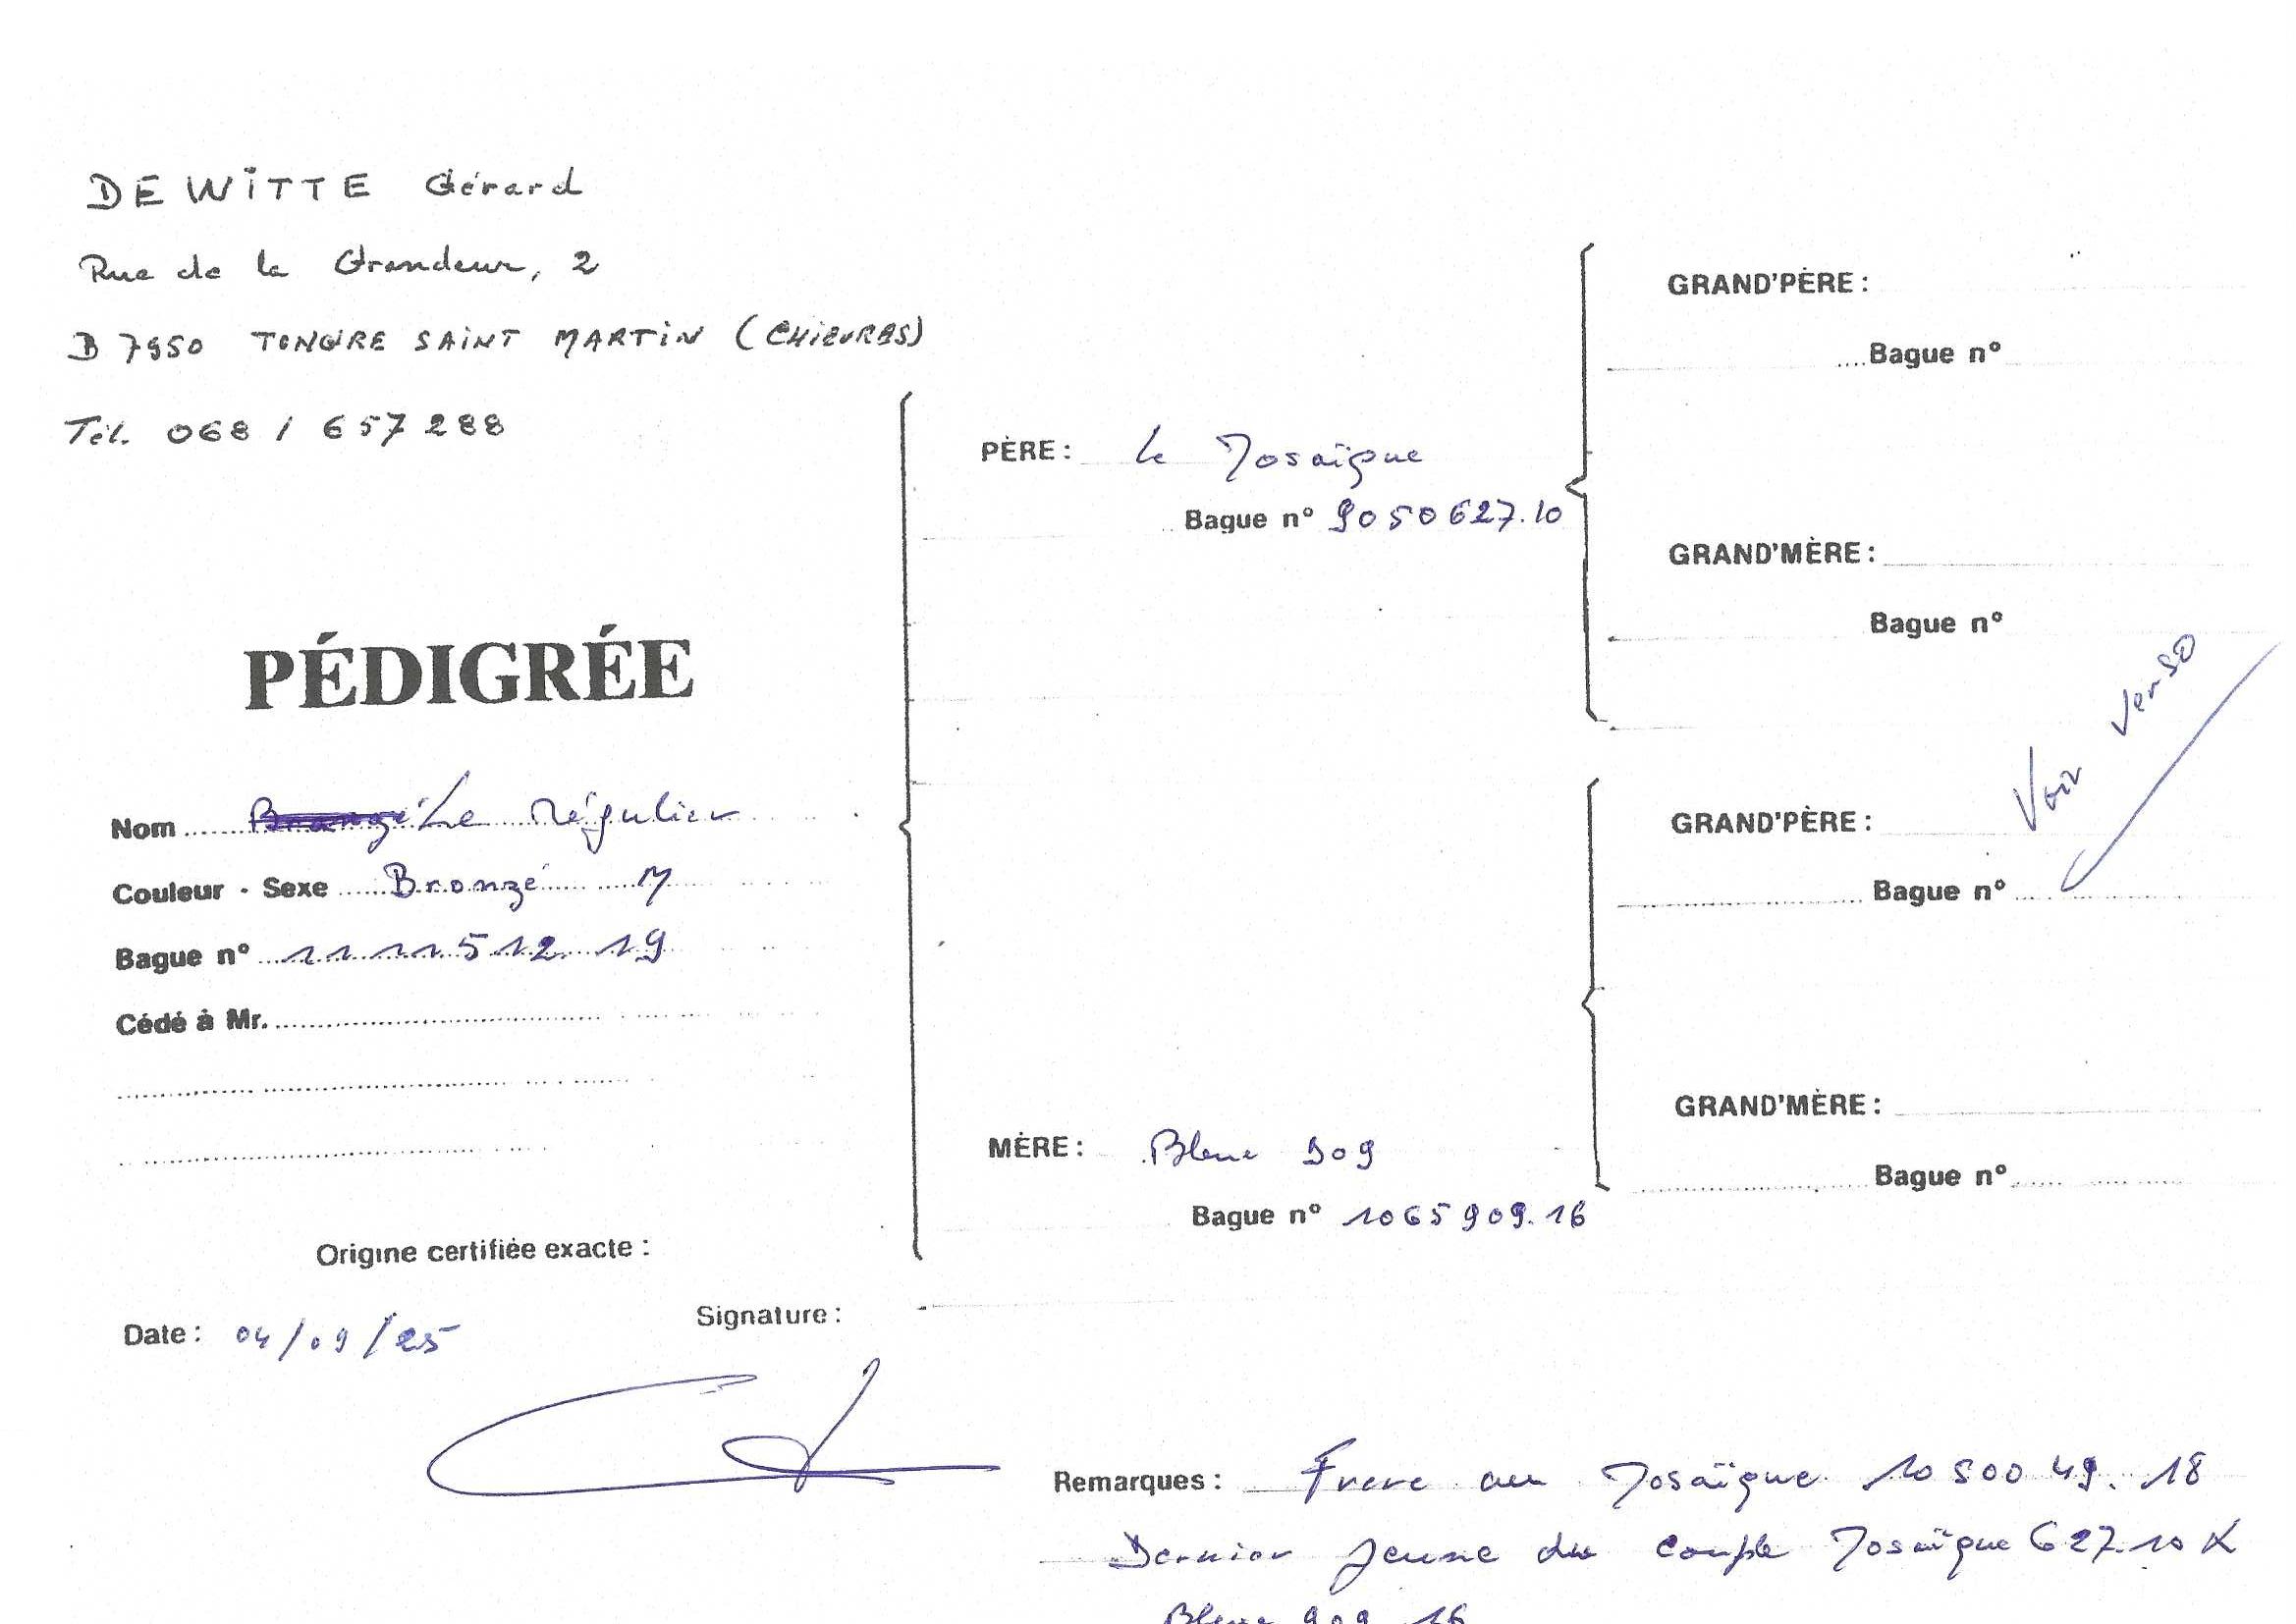 DE WITTE Gérard
Rue de la Grandeur, 2
B 7950 TONGRE SAINT MARTIN (CHIEVRES)
Tél. 068 / 657288
PÉDIGRÉE
Nom Bronzé Le Régulier
Couleur - Sexe Bronzé M
Bague n° 1111512.19
Cédé à Mr.
Origine certifiée exacte :
Date : 04/09/25
Signature :
PÈRE : Le Mosaïque
Bague n° 9050627.10
MÈRE : Bleue 909
Bague n° 1065909.16
GRAND'PÈRE :
Bague n°
GRAND'MÈRE :
Bague n°
GRAND'PÈRE :
Bague n°
GRAND'MÈRE :
Bague n°
Voir verso
Remarques : Frere au Mosaïque 1050049.18
Dernier jeune du couple Mosaïque 627.10 X
Bleue 909.16